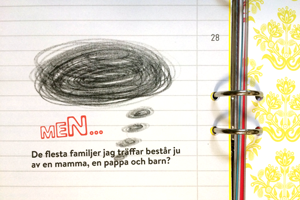 28
MEN...
De flesta familjer jag träffar består ju
av en mamma, en pappa och barn?